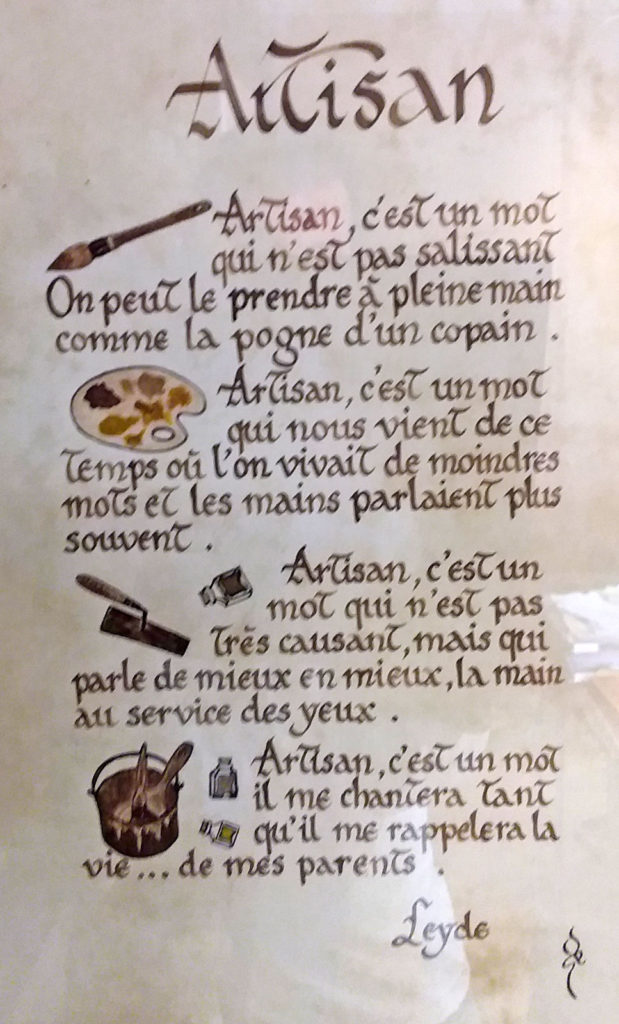 Artisan
Artisan, c'est un mot
qui n'est pas salissant
On peut le prendre à pleine main
comme la pogne d'un copain .
Artisan, c'est un mot
qui nous vient de ce
temps où l'on vivait de moindres
mots et les mains parlaient plus
souvent .
Artisan, c'est un
mot qui n'est pas
très causant, mais qui
parle de mieux en mieux, la main
au service des yeux .
Artisan, c'est un mot
il me chantera tant
qu'il me rappelera la
vie... de mes parents .
Leyde